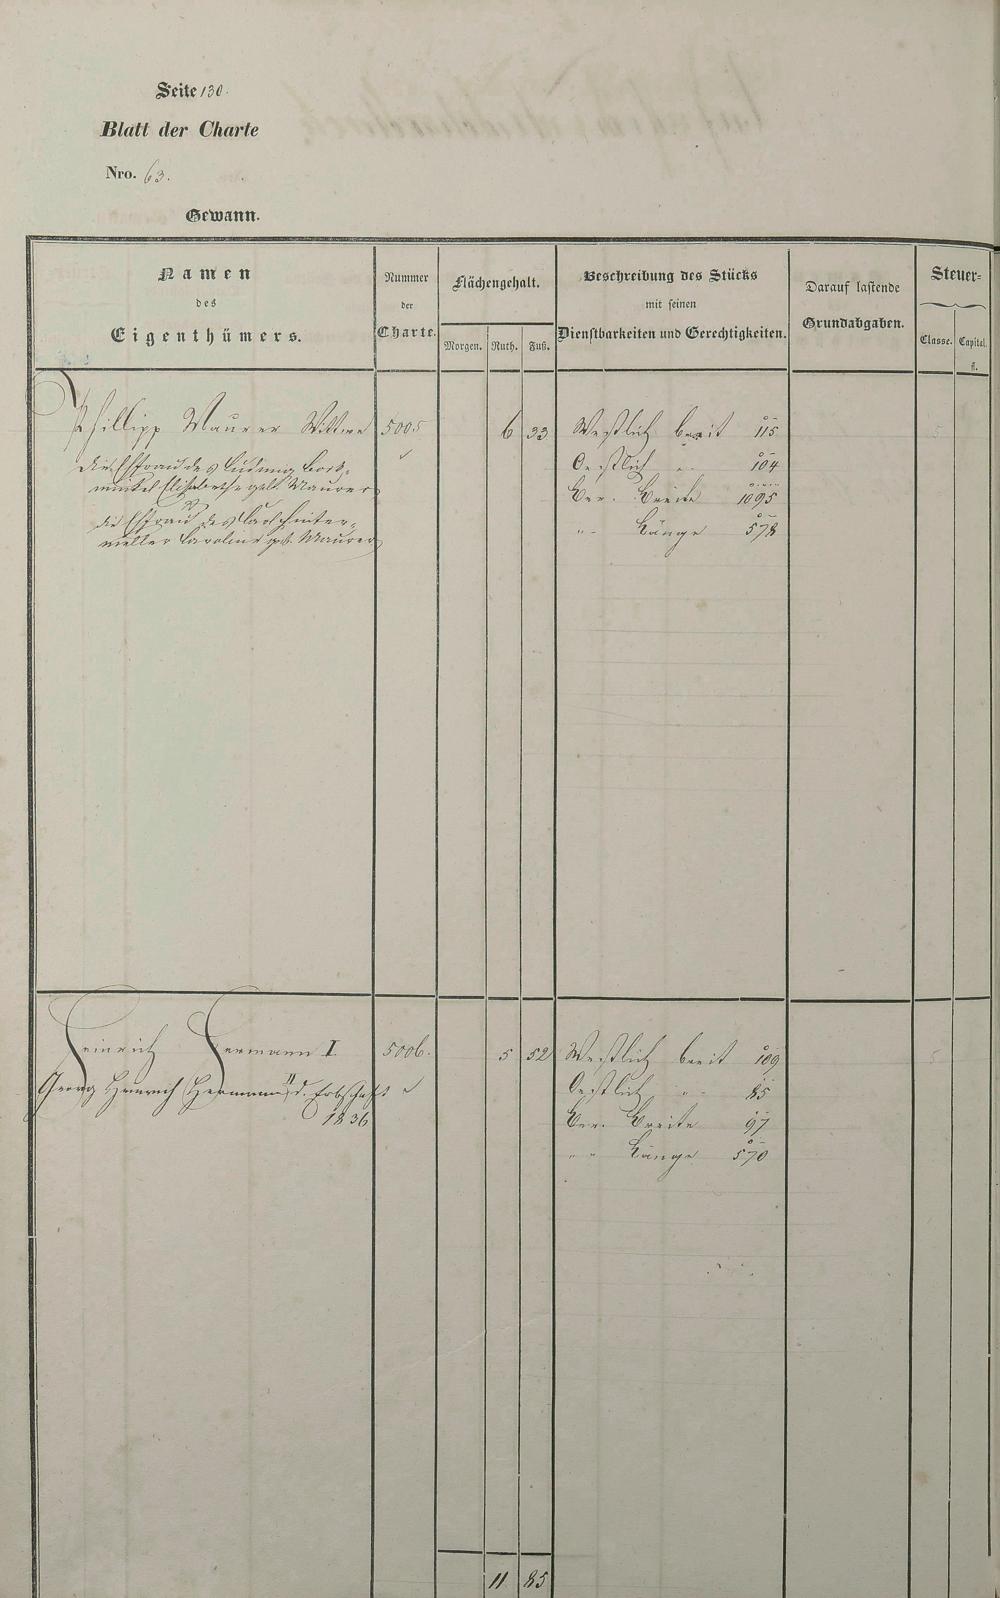 Seite 130.
Blatt der Charte
Nro. 63.
Gewann.
Namen
des
Eigenthümers.
Nummer
der
Charte.
Flächengehalt.
Morgen. Ruth. Fuß.
Beschreibung des Stücks
mit seinen
Dienstbarkeiten und Gerechtigkeiten.
Darauf lastende
Grundabgaben.
Steuer-
Classe. Capital.
fl.
Phillipp Maurer Wittwe 5005 6 33 Westlich breit 115
die Ehfrau des Ludwig
Elisabethe geb. Maurer
die Ehfrau des Carl Hinter-
meller Caroline geb. Maurer
Oestlich „ 104
Ver. Breite 1095
„ Länge 578
5
Heinrich Hermann I. 5006. 5 52 Westlich breit 109
Georg Heinrich Hermann II d. Erbschaft
1836
Oestlich „ 85
Ver. Breite 97
„ Länge 570
5
11 85